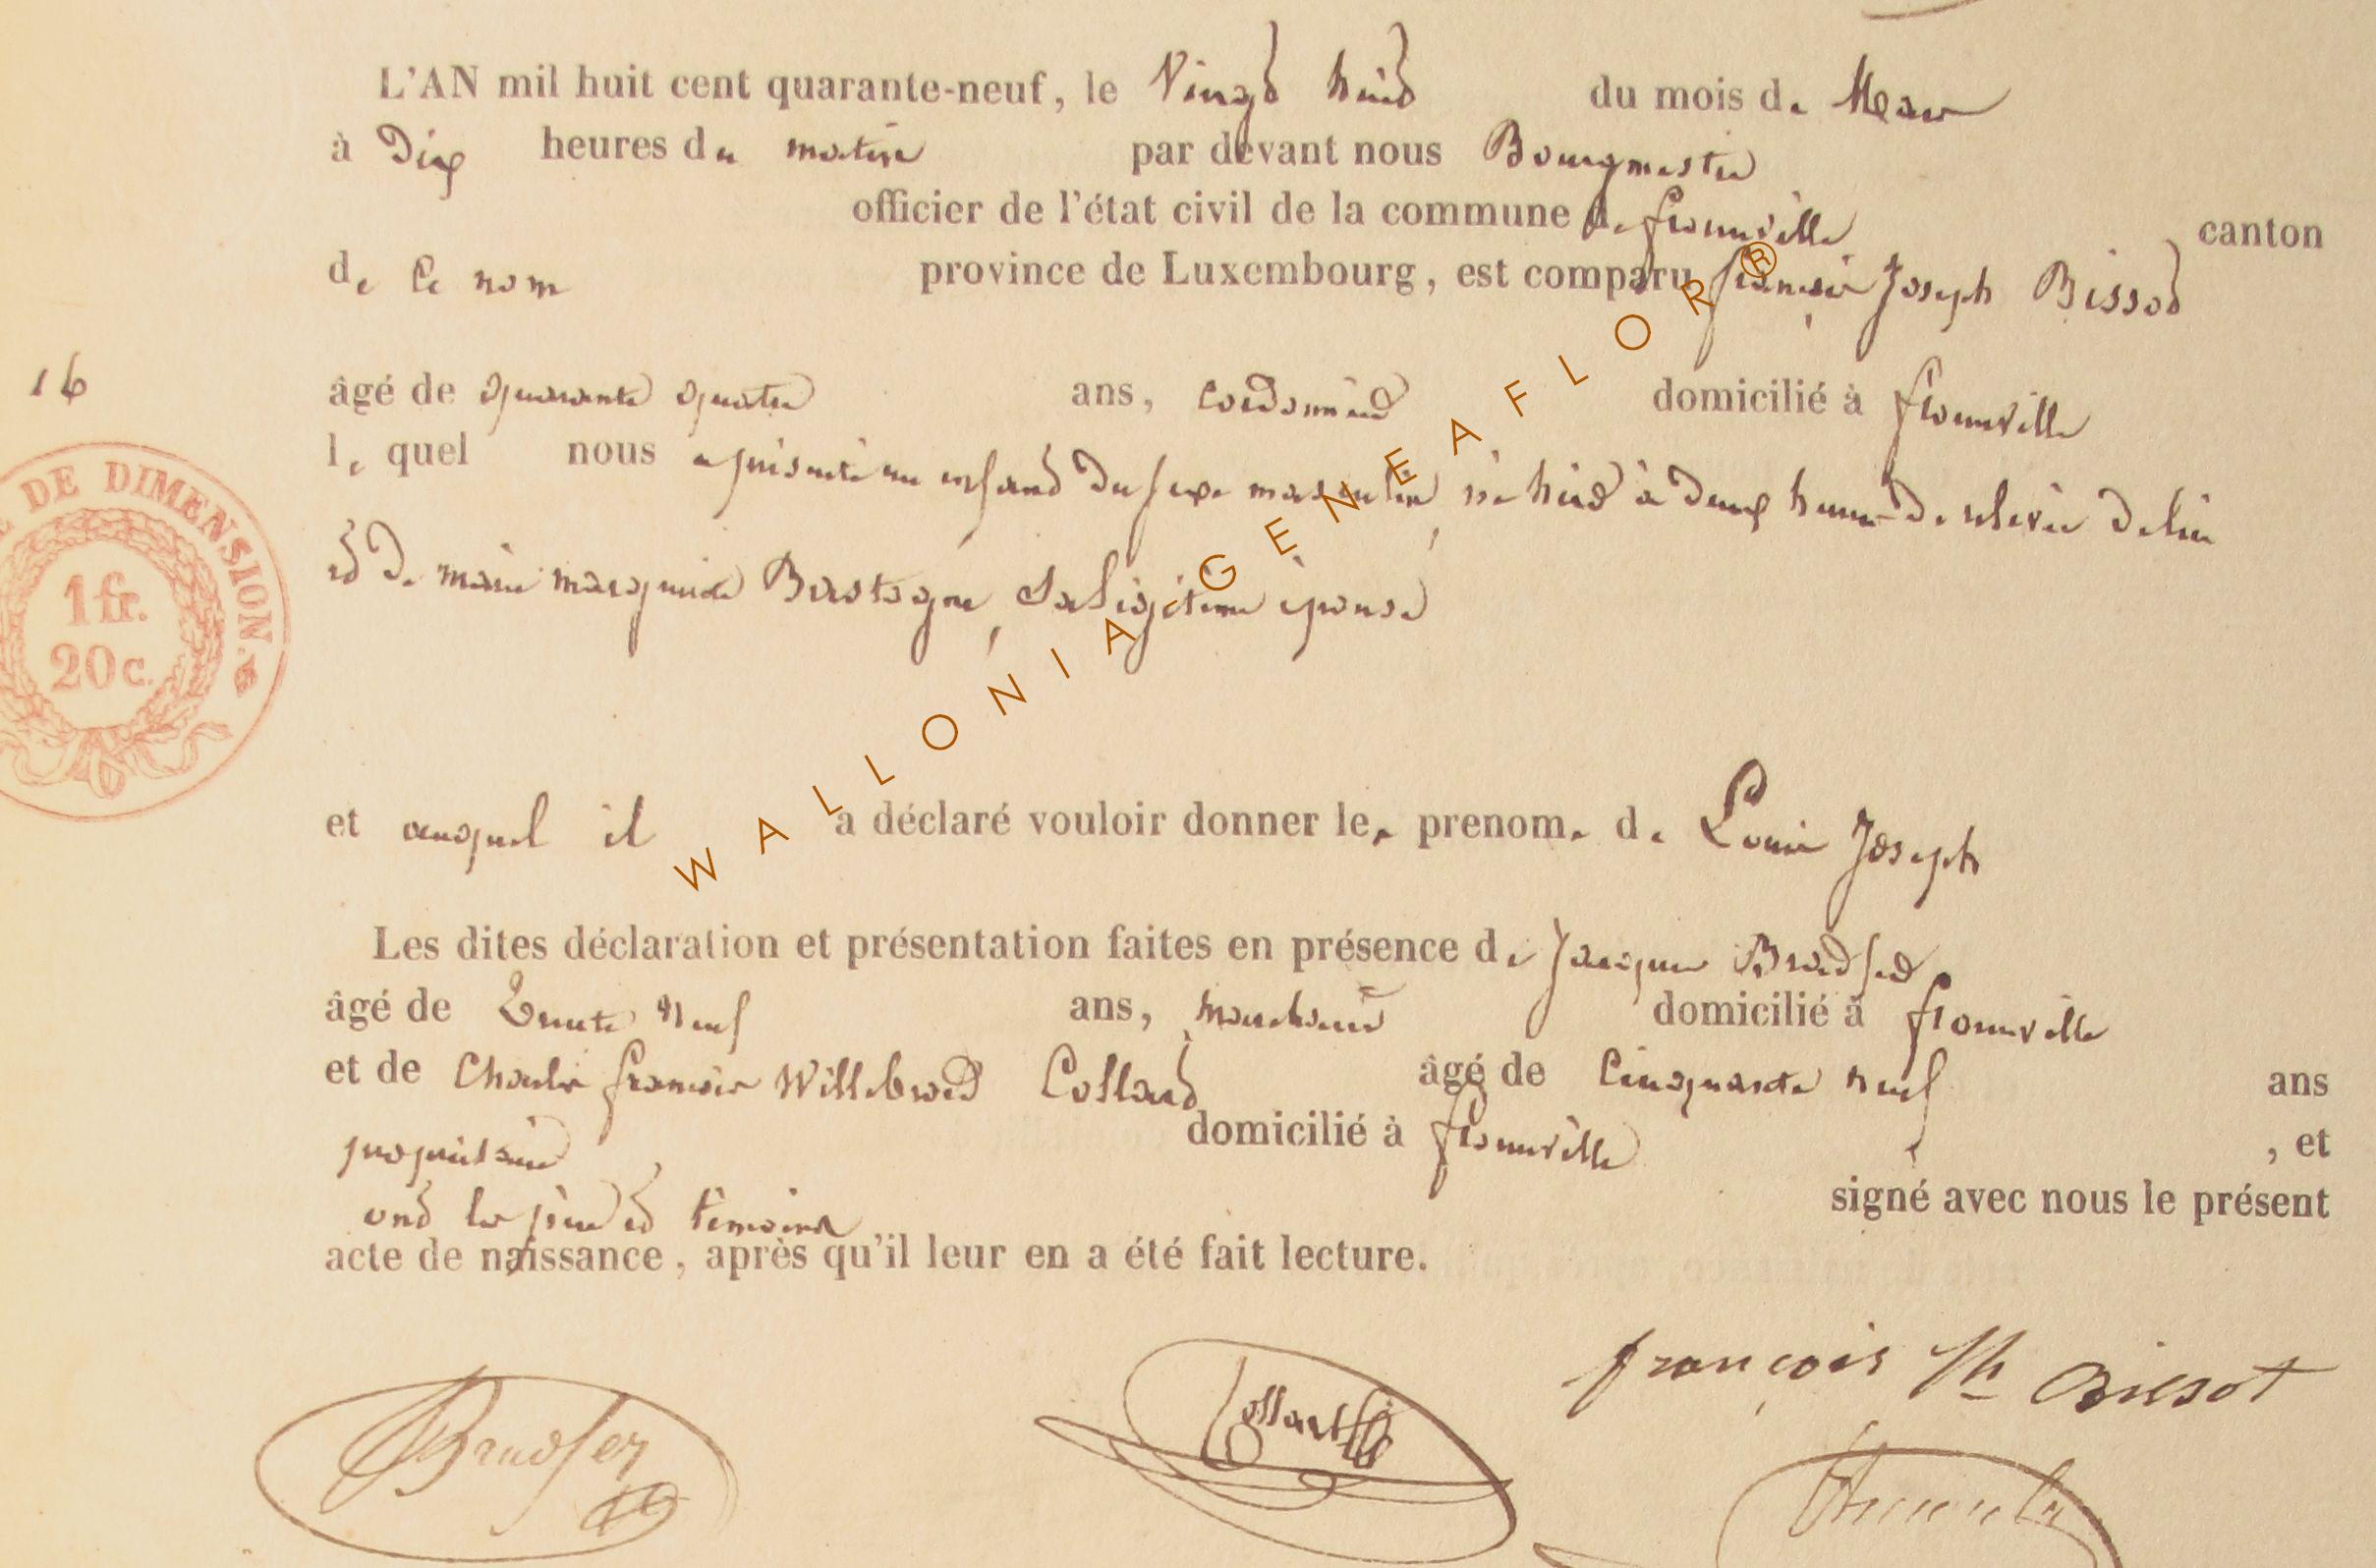 L'AN mil huit cent quarante-neuf, le Vingt huit du mois de Mars
à Dix heures du matin par devant nous Bourgmestre
officier de l'état civil de la commune de florenville canton
de ce nom province de Luxembourg, est comparu françois Joseph Bissot
16
âgé de quarante quatre ans, cordonnier domicilié à florenville
lequel nous a présenté un enfant du sexe masculin, né hier à deux heures de relevée de lui
DE DIMENSION.
et de marie marguerite Bastogne, sa légitime épouse
1 fr.
20 c.
WALLONIA GENEAFLOR®
et auquel il a déclaré vouloir donner les prenom. de Louis Joseph
Les dites déclaration et présentation faites en présence de Jacques Bradfer
âgé de Trente Neuf ans, marchand domicilié à florenville
et de Charles françois Willebrord Collard âgé de Cinquante neuf ans
propriétaire domicilié à florenville, et
ont le père et témoins signé avec nous le présent
acte de naissance, après qu'il leur en a été fait lecture.
françois Jh Bissot
Bradfer Collard